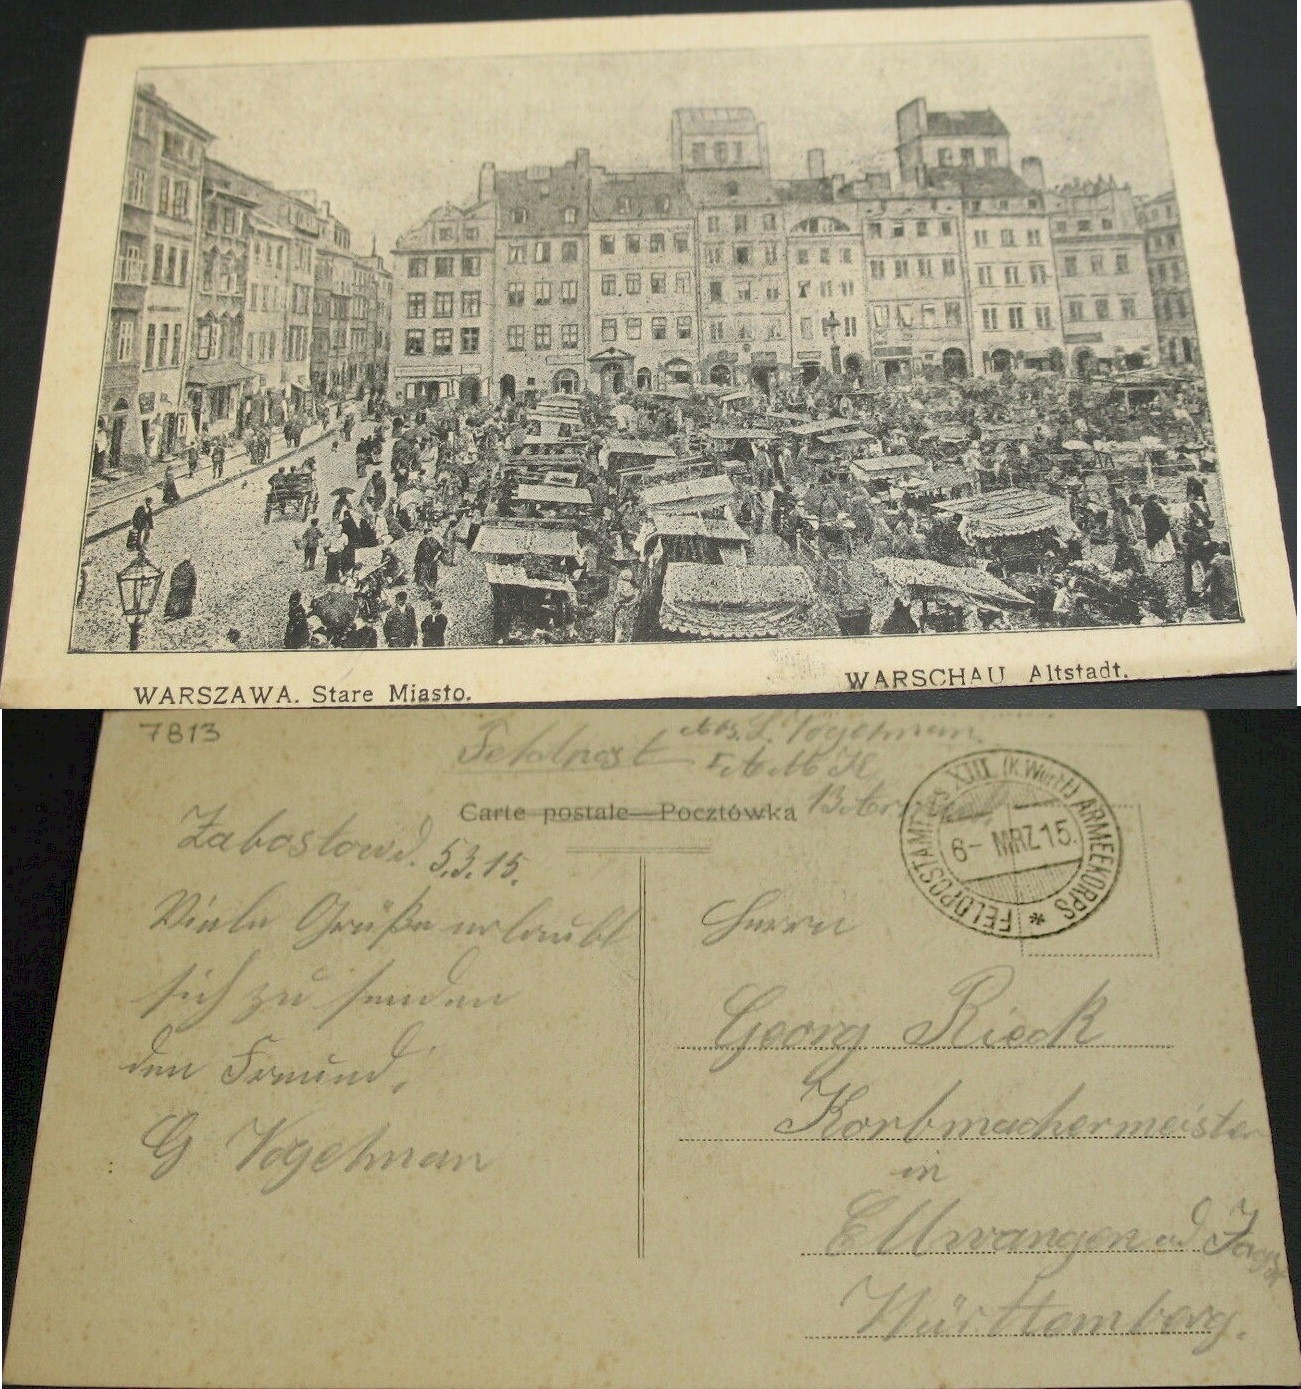 WARSZAWA. Stare Miasto.
WARSCHAU Altstadt.
7813
Feldpost Abs. L. Vogelman.
Carte postale—Pocztówka
FELDPOSTAMT des XIII. (K. Württ) ARMEEKORPS *
6- MRZ 15.
5.3.15.
Viele Grüße erlaubt
sich zu senden
den Freund,
G Vogelman
Herrn
Georg Rieck
Korbmachermeister
in
Ellwangen a d Jagst
Württemberg.